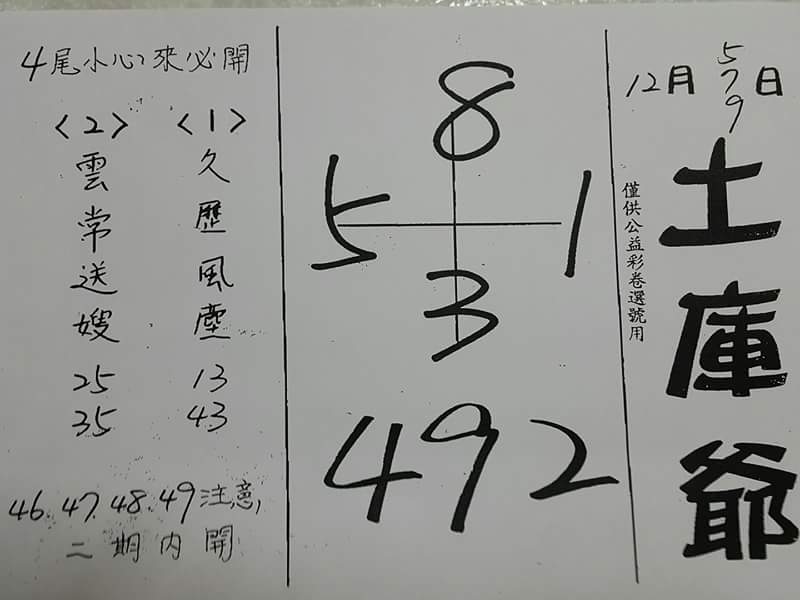 12月5 7 9日
土庫爺
僅供公益彩卷選號用
8
5 1
3
492
4尾小心來必開
<1>
久歷風塵
13
43
<2>
雲常送嫂
25
35
46.47.48.49注意
二期内開